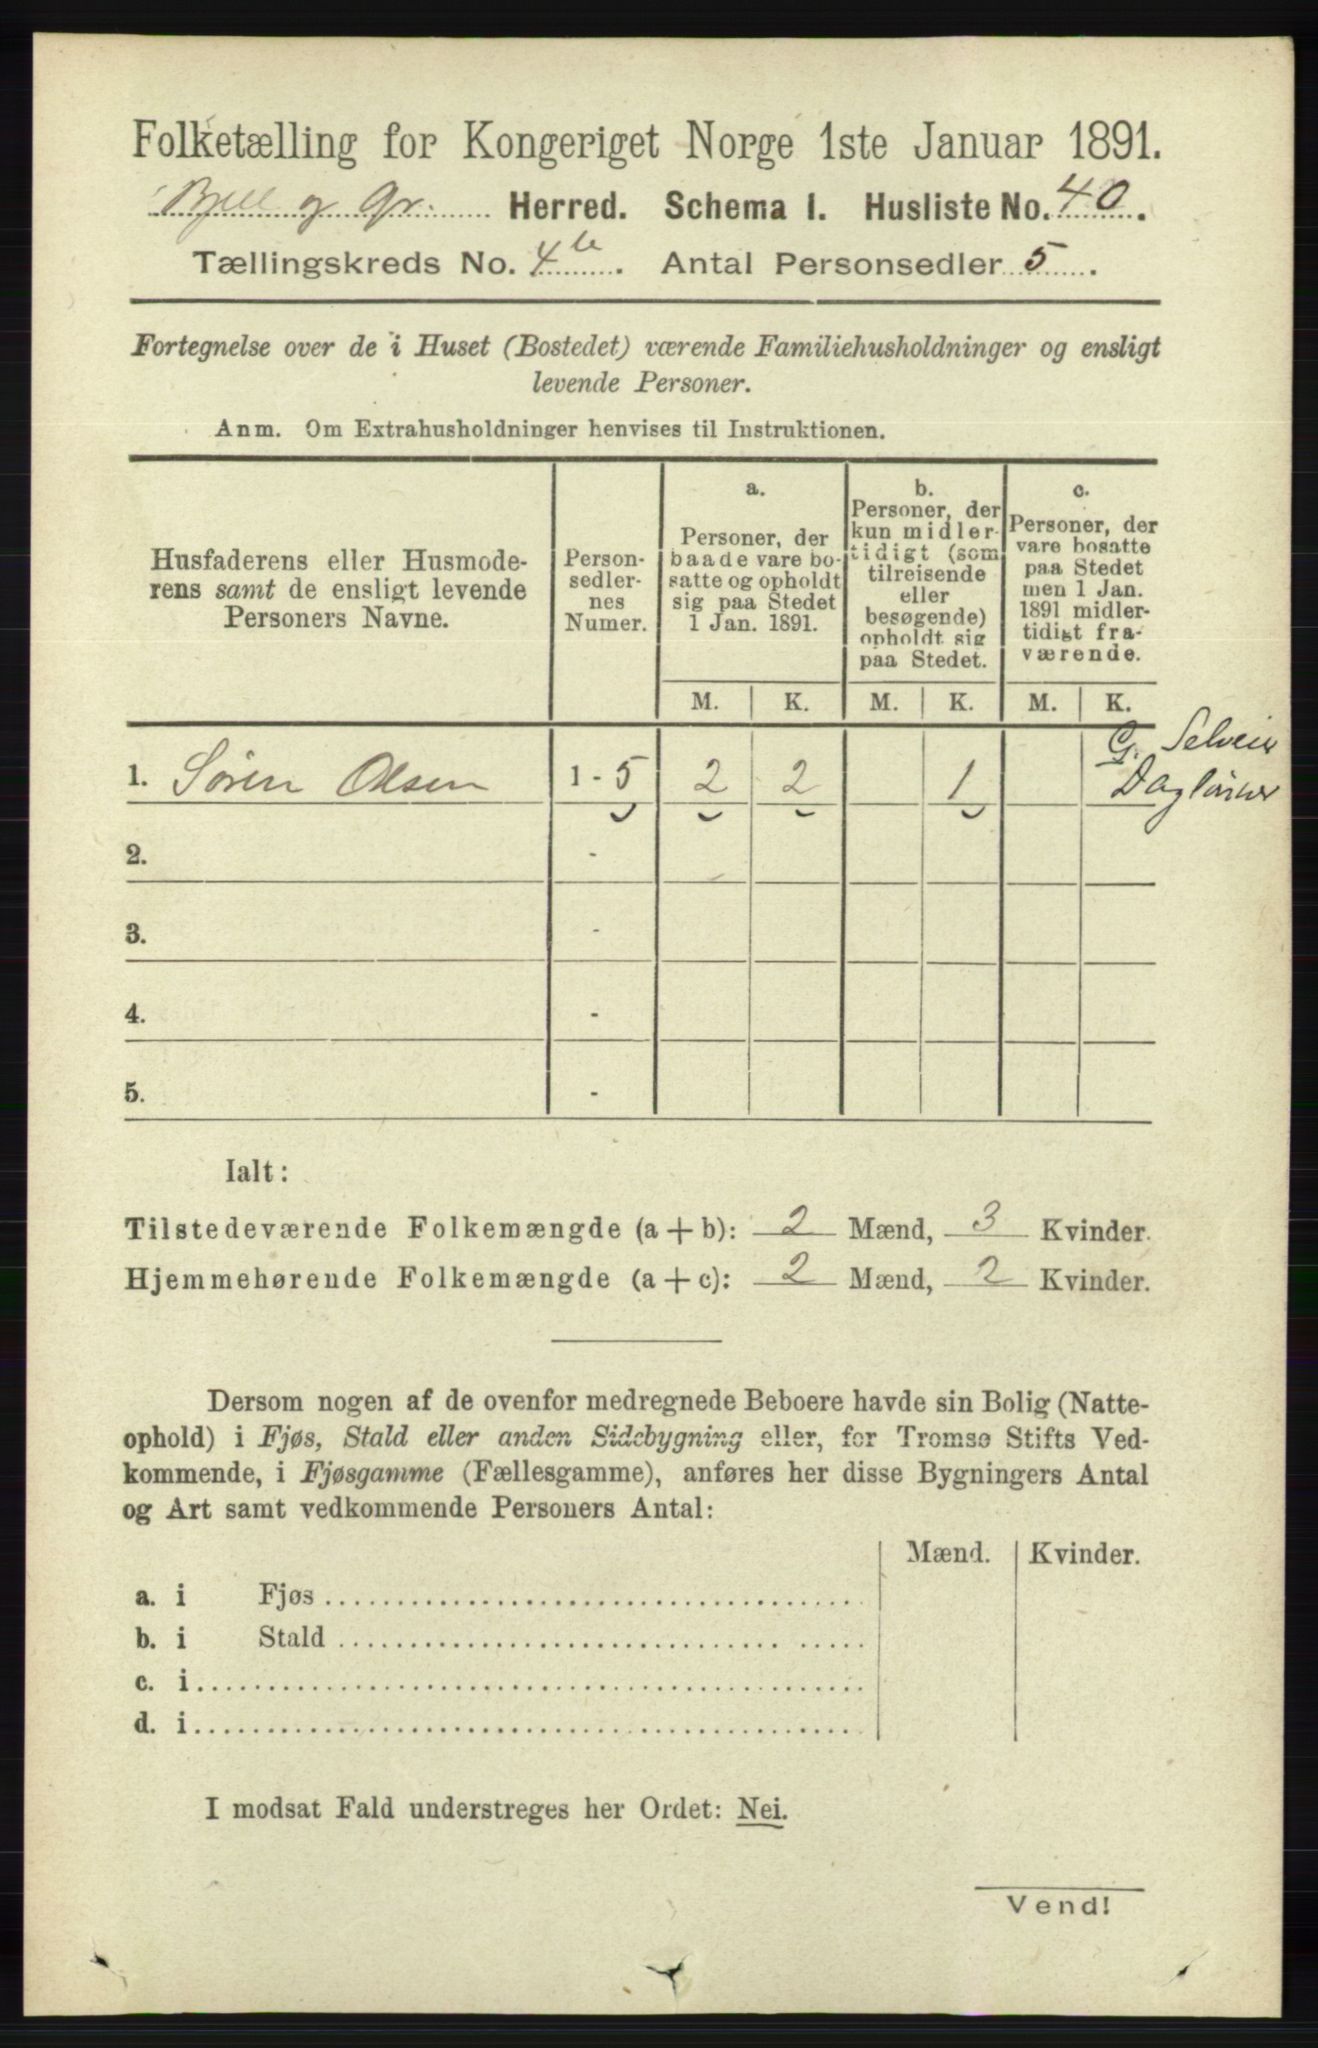 Folketælling for Kongeriget Norge 1ste Januar 1891.
Bjell og Gr. Herred. Schema I. Husliste No. 40.
Tællingskreds No. 4b. Antal Personsedler 5.
Fortegnelse over de i Huset (Bostedet) værende Familiehusholdninger og ensligt
levende Personer.
Anm. Om Extrahusholdninger henvises til Instruktionen.
Husfaderens eller Husmode-
rens samt de ensligt levende
Personers Navne.
Person-
sedler-
nes
Numer.
a.
Personer, der
baade vare bo-
satte og opholdt
sig paa Stedet
1 Jan. 1891.
b.
Personer, der
kun midler-
tidigt (som
tilreisende
eller
besøgende)
opholdt sig
paa Stedet.
c.
Personer, der
vare bosatte
paa Stedet
men 1 Jan.
1891 midler-
tidigt fra-
værende.
M. K. M. K. M. K.
G. Selveier
1. Søren Olsen 1 - 5 2 2 1 Daglønner
2. -
3. -
4. -
5. -
Ialt:
Tilstedeværende Folkemængde (a + b): 2 Mænd, 3 Kvinder.
Hjemmehørende Folkemængde (a + c): 2 Mænd, 2 Kvinder.
Dersom nogen af de ovenfor medregnede Beboere havde sin Bolig (Natte-
ophold) i Fjøs, Stald eller anden Sidebygning eller, for Tromsø Stifts Ved-
kommende, i Fjøsgamme (Fællesgamme), anføres her disse Bygningers Antal
og Art samt vedkommende Personers Antal:
Mænd. Kvinder.
a. i Fjøs
b. i Stald
c. i
d. i
I modsat Fald understreges her Ordet: Nei.
Vend!